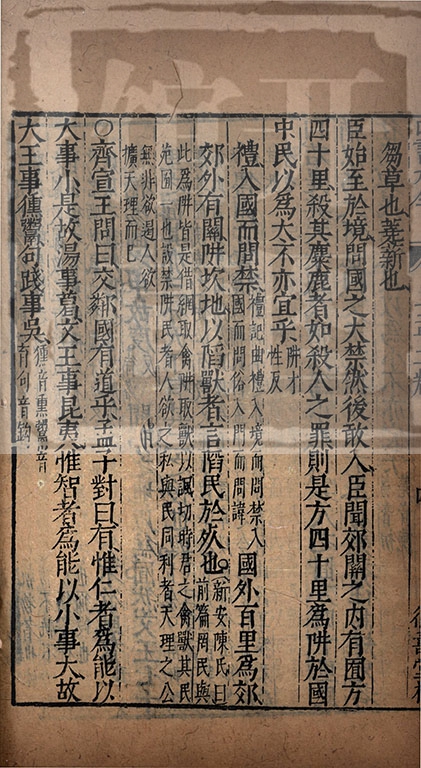 芻草也蕘薪也
臣始至於境問國之大禁然後敢入臣聞郊關之內有囿方
四十里殺其麋鹿者如殺人之罪則是方四十里為阱於國
中民以為大不亦宜乎阱才性反
禮入國而問禁禮記曲禮入境而問禁入國而問俗入門而問諱國外百里為郊
郊外有關阱坎地以陷獸者言陷民於死也新安陳氏曰前篇罔民與
此為阱皆是借網取禽阱取獸以諷切時君之禽獸其民
施囿一也設禁阱民者人欲之私與民同利者天理之公
無非欲遏人欲
擴天理而已
○齊宣王問曰交鄰國有道乎孟子對曰有惟仁者為能以
大事小是故湯事葛文王事昆夷惟智者為能以小事大故
大王事獯鬻句踐事吳獯音熏鬻音育句音鉤